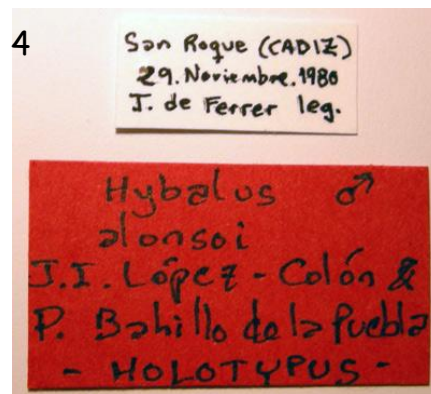 4
San Roque (CADIZ)
29. Noviembre. 1980
J. de Ferrer leg.
Hybalus ♂
alonsoi
J.I. López - Colón &
P. Bahillo de la Puebla
- HOLOTYPUS -